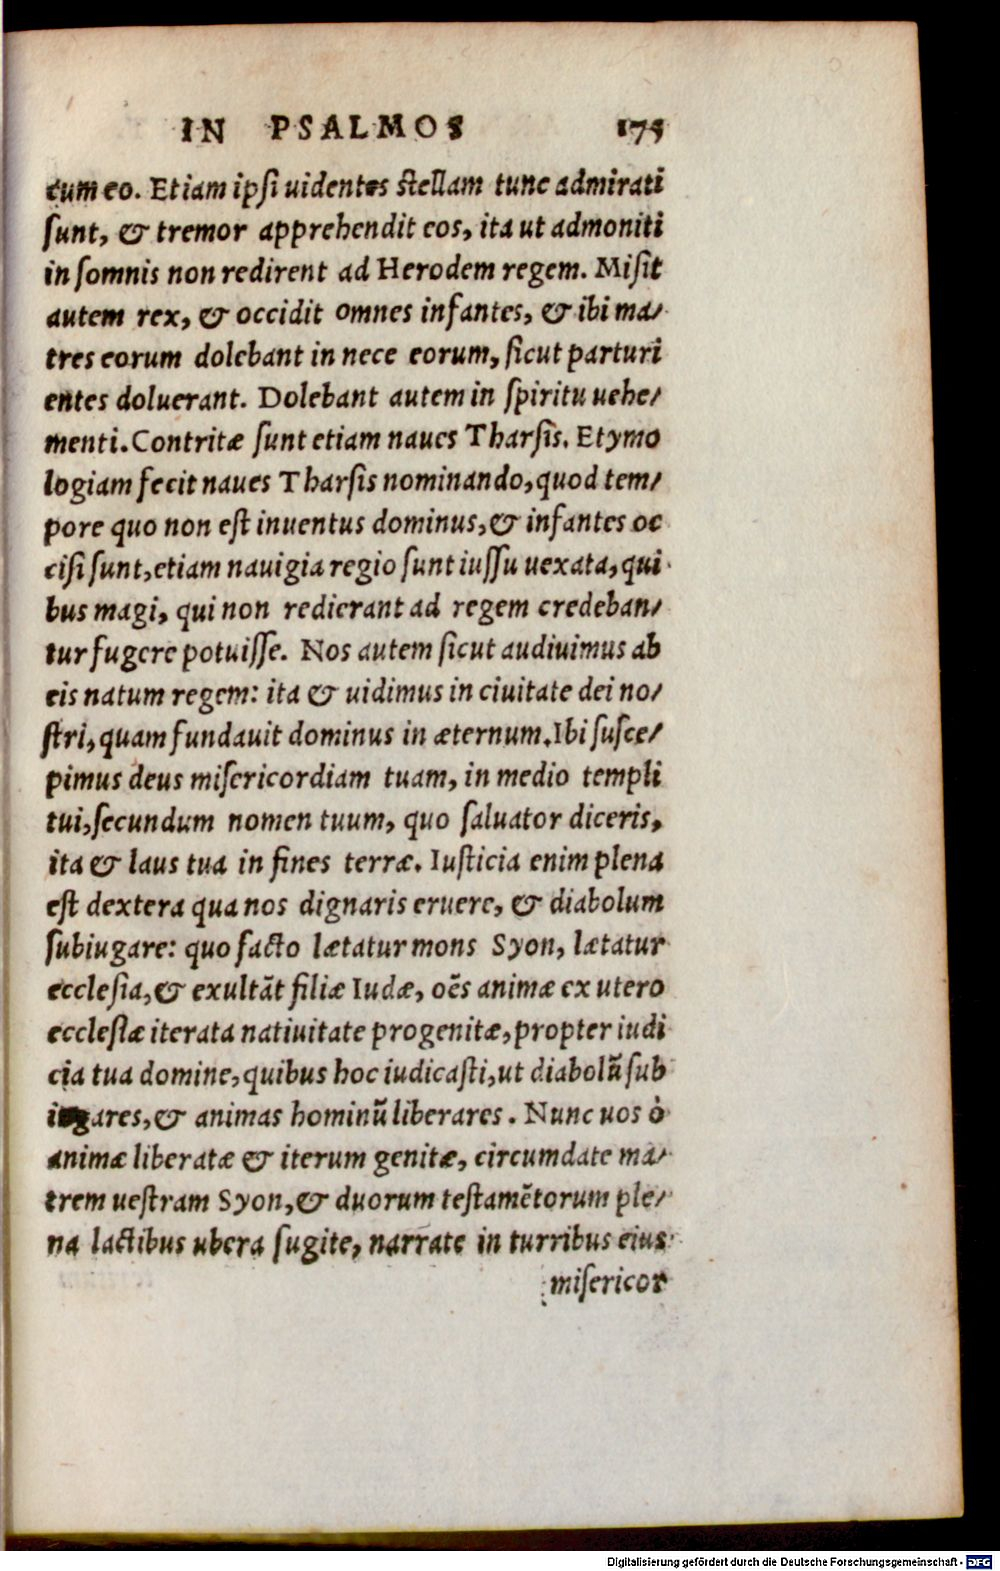 IN PSALMOS 175
cum eo. Etiam ipsi uidentes stellam tunc admirati
sunt, & tremor apprehendit eos, ita ut admoniti
in somnis non redirent ad Herodem regem. Misit
autem rex, & occidit omnes infantes, & ibi ma/
tres eorum dolebant in nece eorum, sicut parturi
entes doluerant. Dolebant autem in spiritu uehe/
menti. Contritæ sunt etiam naues Tharsis. Etymo
logiam fecit naues Tharsis nominando, quod tem/
pore quo non est inuentus dominus, & infantes oc
cisi sunt, etiam nauigia regio sunt iussu uexata, qui
bus magi, qui non redierant ad regem credeban/
tur fugere potuisse. Nos autem sicut audiuimus ab
eis natum regem: ita & uidimus in ciuitate dei no/
stri, quam fundauit dominus in æternum. Ibi susce/
pimus deus misericordiam tuam, in medio templi
tui, secundum nomen tuum, quo saluator diceris,
ita & laus tua in fines terræ. Iusticia enim plena
est dextera qua nos dignaris eruere, & diabolum
subiugare: quo facto lætatur mons Syon, lætatur
ecclesia, & exultāt filiæ Iudæ, oēs animæ ex utero
ecclesiæ iterata natiuitate progenitæ, propter iudi
cia tua domine, quibus hoc iudicasti, ut diabolū sub
iugares, & animas hominū liberares. Nunc uos ò
animæ liberatæ & iterum genitæ, circumdate ma/
trem uestram Syon, & duorum testamētorum ple/
na lactibus ubera sugite, narrate in turribus eius
misericor
Digitalisierung gefördert durch die Deutsche Forschungsgemeinschaft - DFG